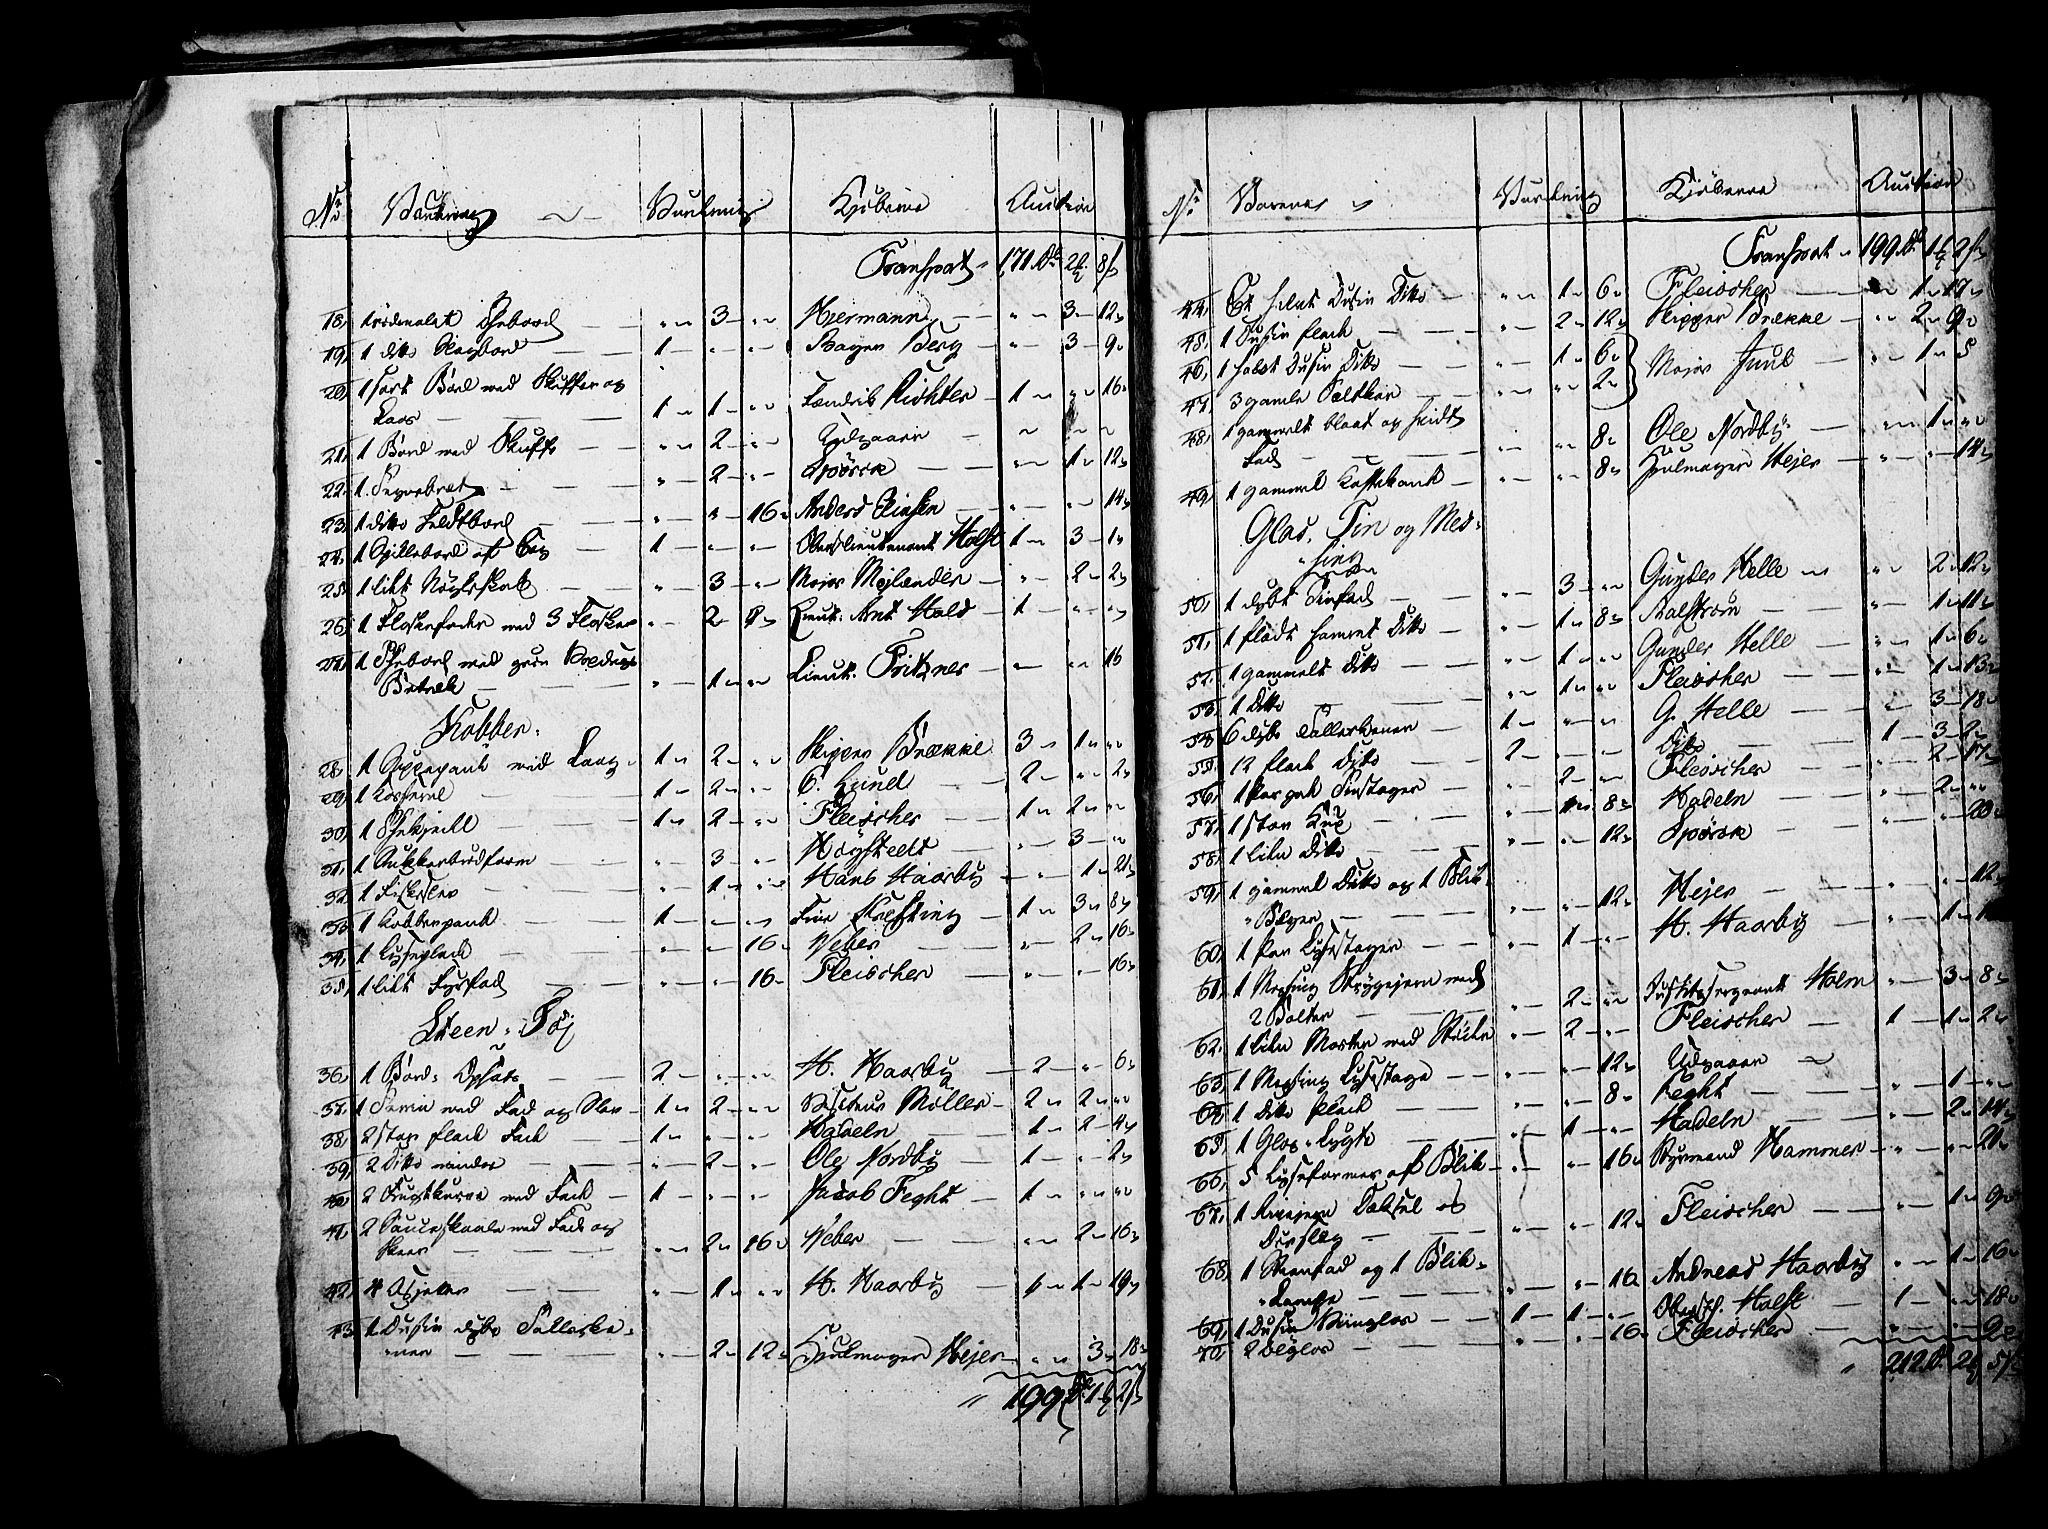 No Varerne Vurdering Kjøberne Auction
Transport „ 171 Dr 2 8 ß
18, 1 ordenalet Thebord „ 3 „ Hjermann „ 3 12
19, 1 dito 1 „ „ Bager Berg „ 3 9
20, 1 sort Bord med Skuffer og
Laas 1 1 „ Fendrik Richter 1 „ 16
21, 1 Bord med Skuffe „ 2 „ Udgaaer
22, 1 „ 2 „ Spörck „ 1 12
23, 1 dito Feldtbord „ „ 16 Anders „ „ 14
24, 1 Spillebord af Eeg 1 „ „ Oberstlieutenant Holst 1 3 1
25, 1 lidt Nögleskab „ 3 „ Major Mejlænder „ 2 2
26, 1 Flaskefoder med 3 Flasker „ 2 8 Lieut: Arnt Hald 1 „ „
27, 1 Thebord med
Betræk „ 1 „ Lieut. Fritzner „ „ 16
Kobber.
28, 1 med Laag 1 2 „ Skipper Brække 3 1 „
29, 1 Casserol 1 2 „ C. Lund 2 „ 2
30, 1 Thekjedel 1 2 „ Fleischer 1 2 „
31, 1 Sukkerbrødform „ 3 „ Høystedt „ 3 „
32, 1 „ 1 „ Hans Haarby „ 1 21
33, 1 Kobberpande 1 „ „ Frue Kresting 1 3 8
34, 1 Lyseplade „ „ 16 Weber „ 2 16
35, 1 lidt Fyrfad „ „ 16 Fleischer „ „ 16
Steen-Tøj
36, 1 Bord-Opsats 2 „ „ H. Haarby 2 „ 6
37, 1 Terrin med Fad og 1 2 „ Møller 2 2 „
38, 2 store flade Fade 1 „ „ Hadeln 1 2 4
39, 2 Ditto mindre „ 2 „ Ole Nordby 1 „ 2
40, 2 Frugtkurve med Fade 1 „ „ Jacob Feght 1 „ „
41, 2 Sauceskaale med Fade og
Skeer „ 2 16 Weber „ 2 16
42, 4 „ 1 „ H. Haarby 1 1 19
43, 1 Dusin dybe Tallerke-
ner „ 2 12 Hjulmager Hejer „ 3 18
„ 199 Dr 1 2 ß
No Varerne Vurdering Kjöberne Auction
Transport „ 199 Dr 1 2 ß
44, Et halvt Dusin Ditto „ 1 6 Fleischer „ 1 17
45, 1 Dusin flade „ 2 12 Skipper Brække „ 2 9
46, 1 halvt Dusin Ditto „ 1 6 Major Juul „ 1 5
47, 3 gamle Saltkar „ „ 2
48, 1 gammelt blaat og hvidt
Fad „ „ 8 Ole Nordby „ 1 „
49, 1 gammel Kaffekande „ „ 8 Hjulmager Hejer „ „ 14
Glas, Tin og Mes-
sing
50, 1 dybt Tinfad „ 3 „ Gunder Helle „ 2 12
51, 1 fladt hamret Ditto „ 1 8 Malstrøm „ 1 11
52, 1 gammelt Ditto „ 1 „ Gunder Helle „ 1 6
53, 1 Ditto „ 1 „ Fleischer „ 1 13
54, 6 dybe Tallerkener 1 „ „ G. Helle „ 3 18
55, 12 flade Ditto 2 „ „ Ditto 1 3 2
56, 1 Par Tinstager „ 2 „ Fleischer „ 2 17
57, 1 stor „ 1 8 Hadeln „ 2 „
58, 1 liden Ditto „ „ 12 Spörck „ „ 20
59, 1 gammel Ditto og 1 Blik-
Bæger „ „ 12 Hejer „ „ 12
60, 1 Par Lysestager „ 1 „ H. Haarby „ 1
61, 1 Messing Strygejern med
2 Bolter „ 2 „ Holm „ 3 8
62, 1 liden Morter med „ 2 „ Fleischer 1 1 2
63, 1 Messing Lysestage „ „ 12 Udgaaer
64, 1 Ditto flad „ „ 8 Feght „ 1 „
65, 1 Glas-Lygte „ 1 „ Hadeln „ 2 14
66, 5 Lyseformer af Blik „ „ 16 Styrmand Hammer „ „ 21
67, 1 Rivejern og
Dørslag „ „ 12 Fleischer „ 1 9
68, 1 og 1 Blik-
Lampe „ „ 16 Andreas Haarby „ 1 16
69, 1 Dusin 1 1 „ Oberstl. Holst 1 „ 18
70, 2 Ølglas „ „ 16 Fleischer
„ 212 Dr 2 5 ß